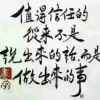 值得信任的
從來不是
說出來的話,而是
做出來的事